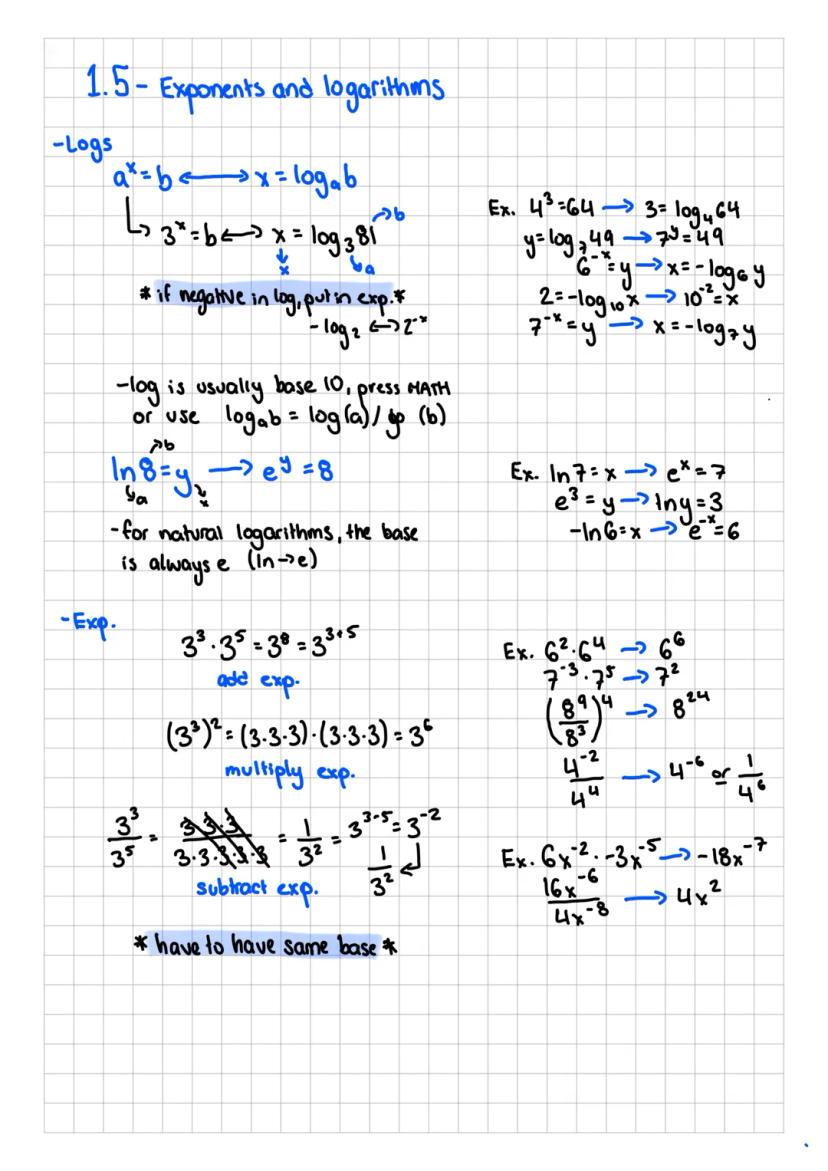 1.5 - Exponents and logarithms
-Logs
aˣ = b ⟷ x = logₐb
↳ 3ˣ = b ⟷ x = log₃81 → b
x a
* if negative in log, put in exp. *
-log₂ ⟷ 2⁻ˣ
Ex. 4³ = 64 → 3 = log₄64
y = log₇49 → 7ʸ = 49
6⁻ˣ = y → x = -log₆y
2 = -log₁₀x → 10⁻² = x
7⁻ˣ = y → x = -log₇y
-log is usually base 10, press MATH
or use logₐb = log(a)/ (b)
→ b
ln 8 = y → eʸ = 8
a x
-for natural logarithms, the base
is always e (ln→e)
Ex. ln 7 = x → eˣ = 7
e³ = y → ln y = 3
-ln 6 = x → e⁻ˣ = 6
-Exp.
3³ · 3⁵ = 3⁸ = 3³⁺⁵
add exp.
(3³)² = (3·3·3)·(3·3·3) = 3⁶
multiply exp.
3³/3⁵ = 3·3·3/3·3·3·3·3 = 1/3² = 3³⁻⁵ = 3⁻²
1/3² ↲
subtract exp.
* have to have same base *
Ex. 6²·6⁴ → 6⁶
7⁻³·7⁵ → 7²
(8⁹/8³)⁴ → 8²⁴
4⁻²/4⁴ → 4⁻⁶ or 1/4⁶
Ex. 6x⁻² · -3x⁻⁵ → -18x⁻⁷
16x⁻⁶/4x⁻⁸ → 4x²